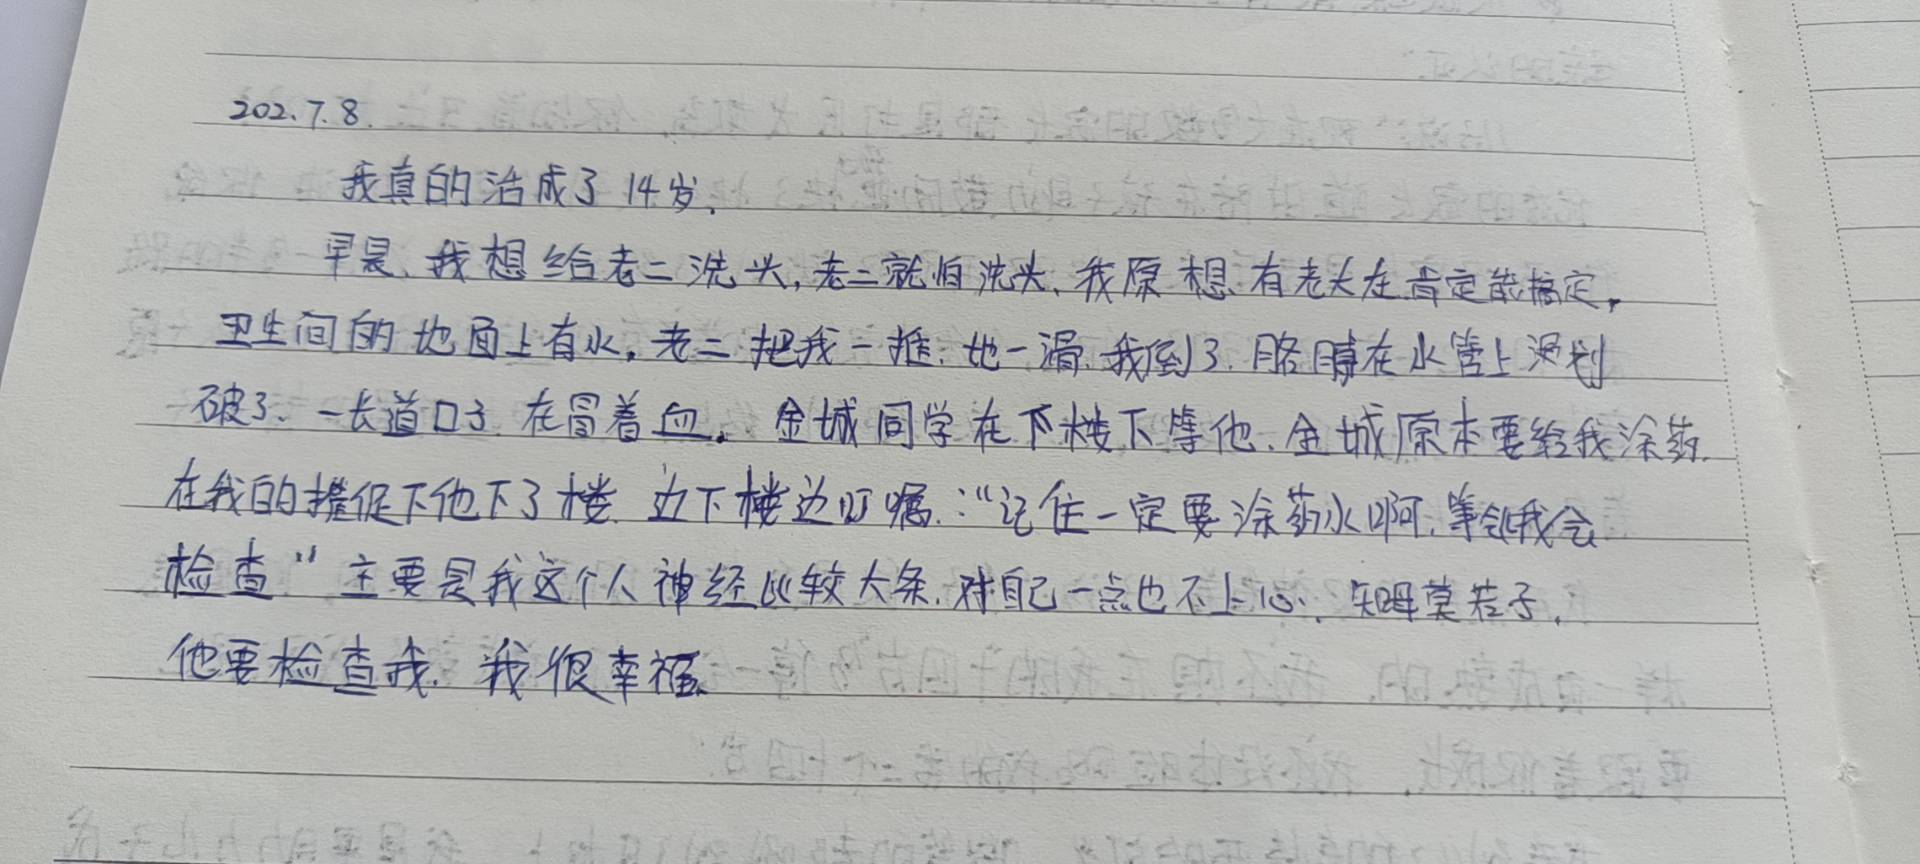 202.7.8
我真的活成了14岁.
早晨、我想给老二洗头,老二就怕洗头、我原想有老大在肯定能搞定,
卫生间的地面上有水,老二把我一推.地一滑.我倒了.胳膊在水管上划
破了.一长道口子.在冒着血.金城同学在下楼下等他.金城原本要给我涂药.
在我的催促下他下了楼.边下楼边叮嘱:“记住一定要涂药水啊.等会我会
检查”主要是我这个人神经比较大条.对自己一点也不上心.知母莫若子.
他要检查我.我很幸福.